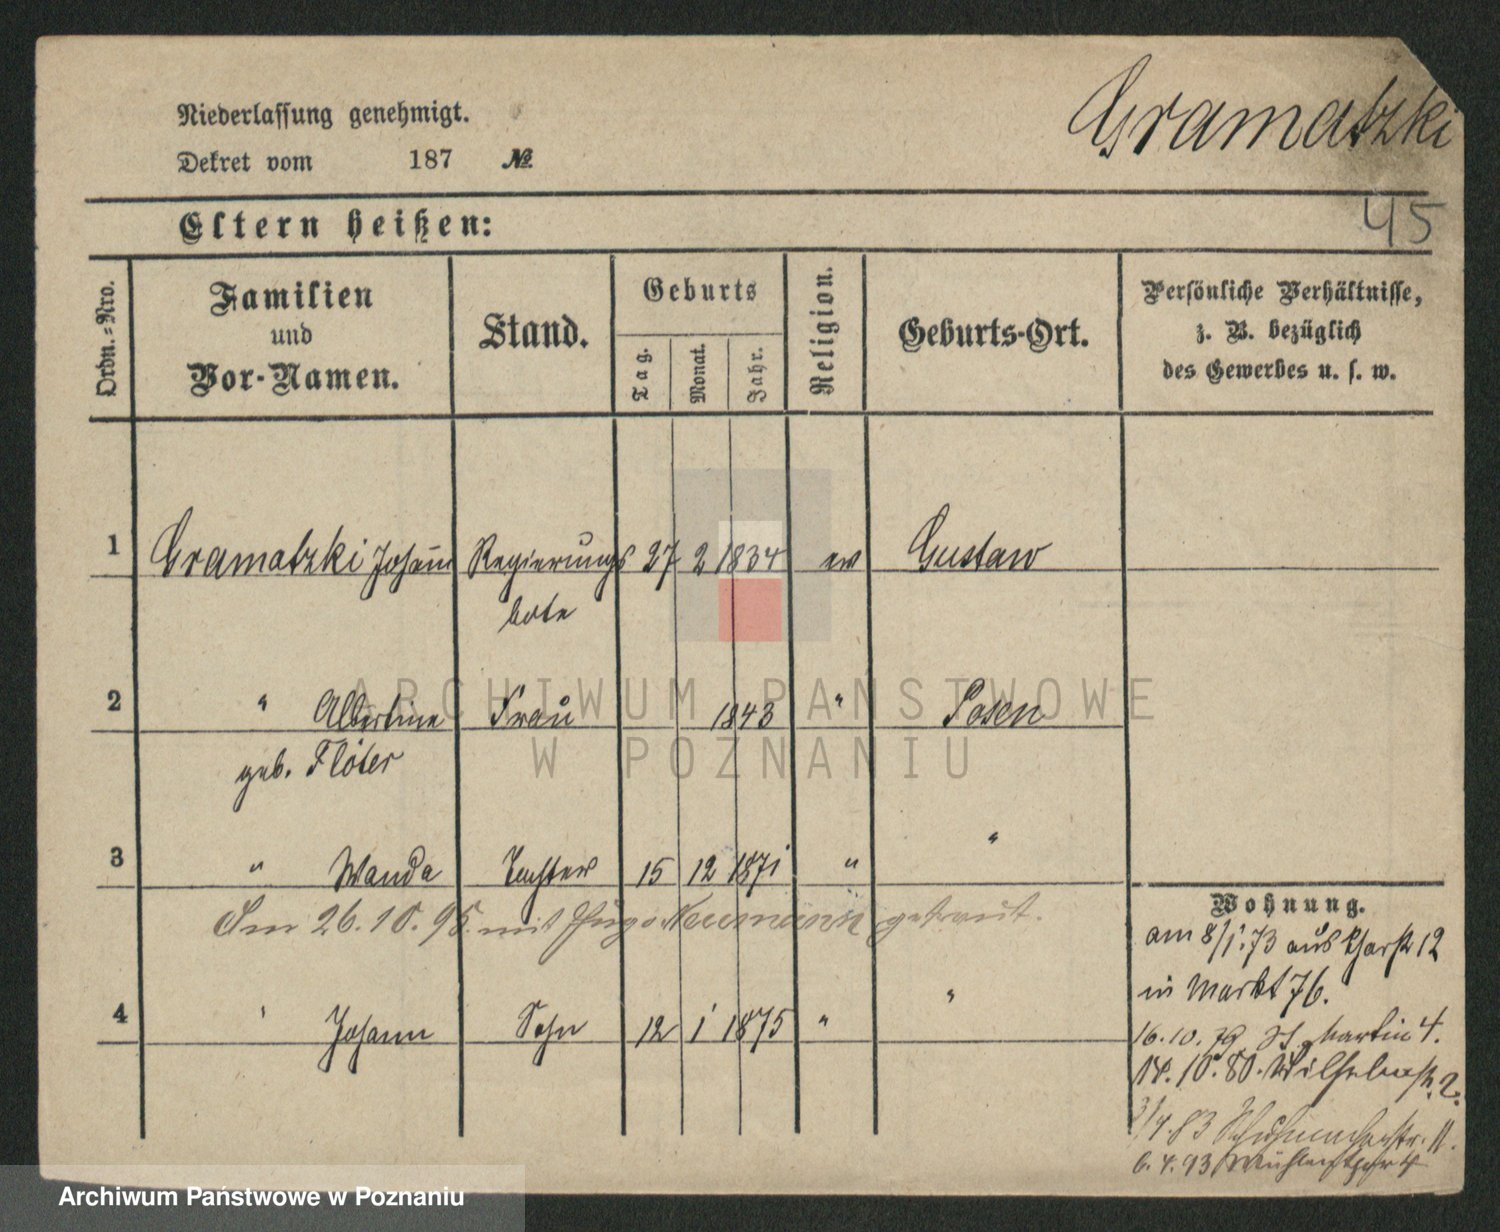 Niederlassung genehmigt.
Gramatzki
Dekret vom 187 №
45
Eltern heißen:
Ordn.-Nro.
Familien
und
Vor-Namen.
Stand.
Geburts
Tag.
Monat.
Jahr.
Religion.
Geburts-Ort.
Persönliche Verhältnisse,
z. B. bezüglich
des Gewerbes u. s. w.
1 Gramatzki Johann Regierungs 27 2 1834 ev Gustaw
bote
2 " Albertine Frau 1843 " Posen
geb. Flöter
3 " Wanda Tochter 15 12 1871 " "
Am 26.10.95. mit Hugo Neumann getraut.
4 " Johann Sohn 12 1 1875 " "
Wohnung.
am 8/1.73 aus 12
in Markt 76.
16.10.79 St. Martin 4.
14.10.80. Wilhelmstr. 2.
3/4.83 Schuhmacherstr. 11.
6.4.93 4
ARCHIWUM PAŃSTWOWE
W POZNANIU
Archiwum Państwowe w Poznaniu